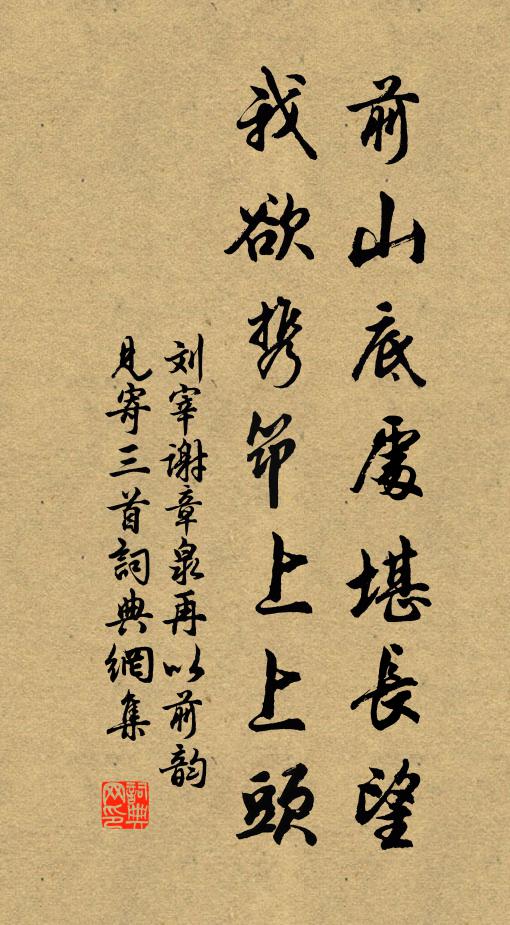 前山底處堪長望
我欲携笻上上頭
刘宰谢章泉再以前韵
見寄三首詞典網集
詞典
网印